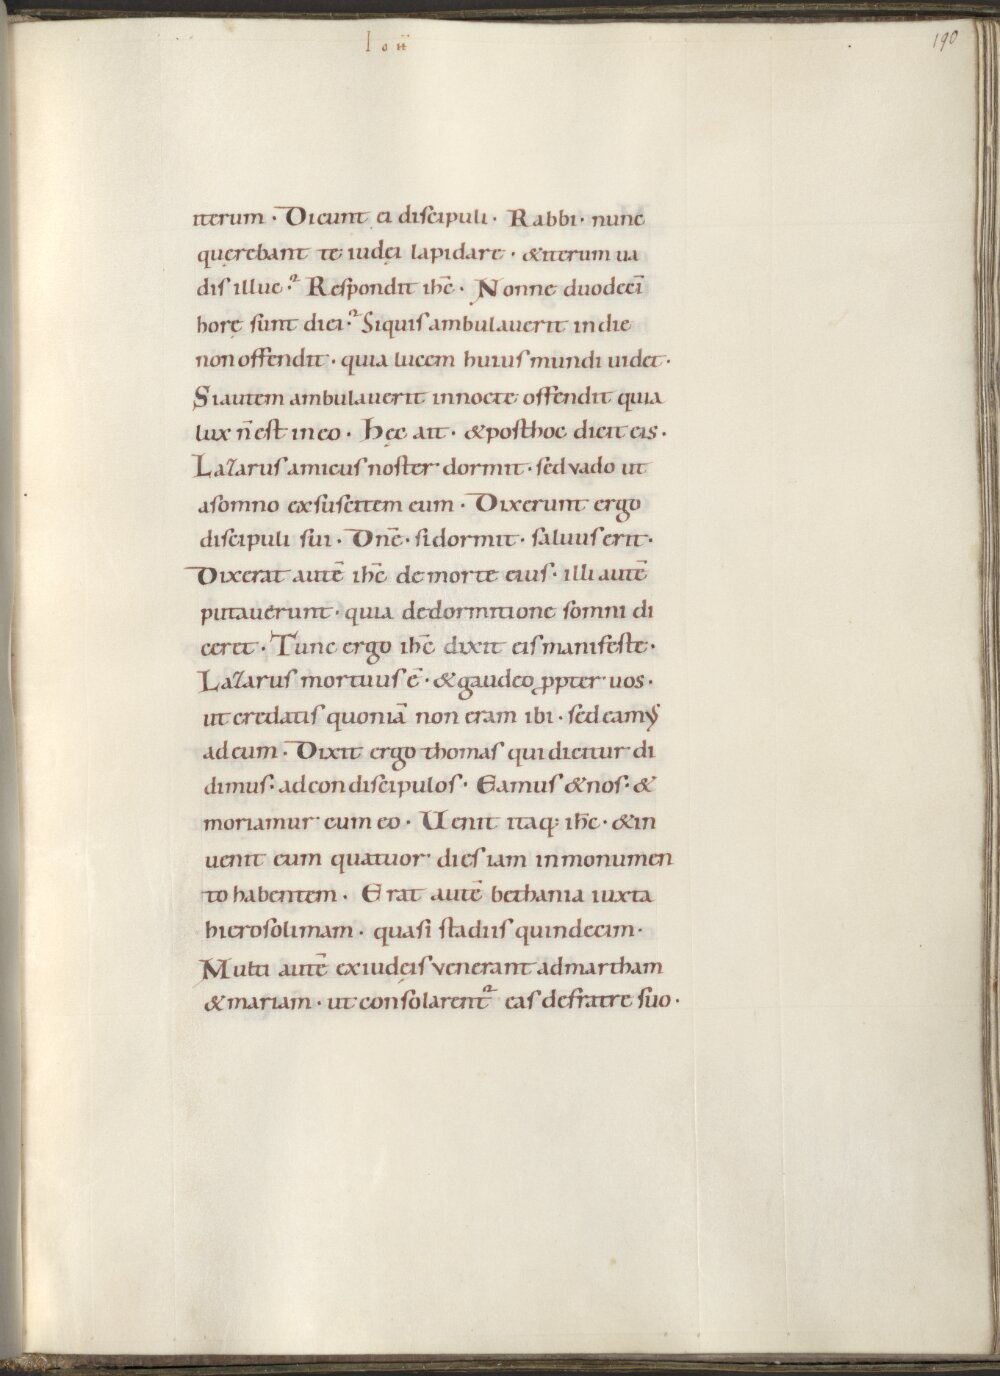 Ioħ
190
iterum · Dicunt ei discipuli · Rabbi · nunc
querebant te iudei lapidare · & iterum ua
dis illuc ? Respondit ihc̄ · Nonne duodecī
horę sunt diei ? Siquis ambulauerit in die
non offendit · quia lucem huius mundi uidet ·
Si autem ambulauerit in nocte offendit quia
lux n̄ est in eo · Hęc ait · & post hoc dicit eis ·
Lazarus amicus noster dormit · sed vado ut
a somno exsuscitem eum · Dixerunt ergo
discipuli sui · Dn̄e · si dormit · saluus erit ·
Dixerat autē ihc̄ de morte eius · illi autē
putauerunt · quia de dormitione somni di
ceret · Tunc ergo ihc̄ dixit eis manifeste ·
Lazarus mortuus ē · & gaudeo ꝓpter uos ·
ut credatis quoniā non eram ibi · sed eamꝰ
ad eum · Dixit ergo thomas qui dicitur di
dimus · ad condiscipulos · Eamus & nos · &
moriamur cum eo · Uenit itaq; ihc̄ · & in
uenit eum quatuor dies iam in monumen
to habentem · Erat autē bethania iuxta
hierosolimam · quasi stadiis quindecim ·
Multi autē ex iudeis venerant ad martham
& mariam · ut consolarent᷑ eas de fratre suo ·